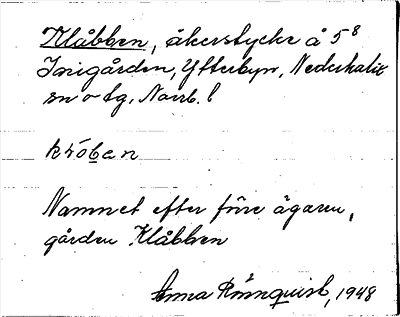 Klåbben, åkerstycke å 5⁸
Inigården, Ytterbyn, Nederkalix
sn o tg, Norrb. l
klóben
Namnet efter förre ägaren,
gården Klåbben
Anna Rönnquist, 1948